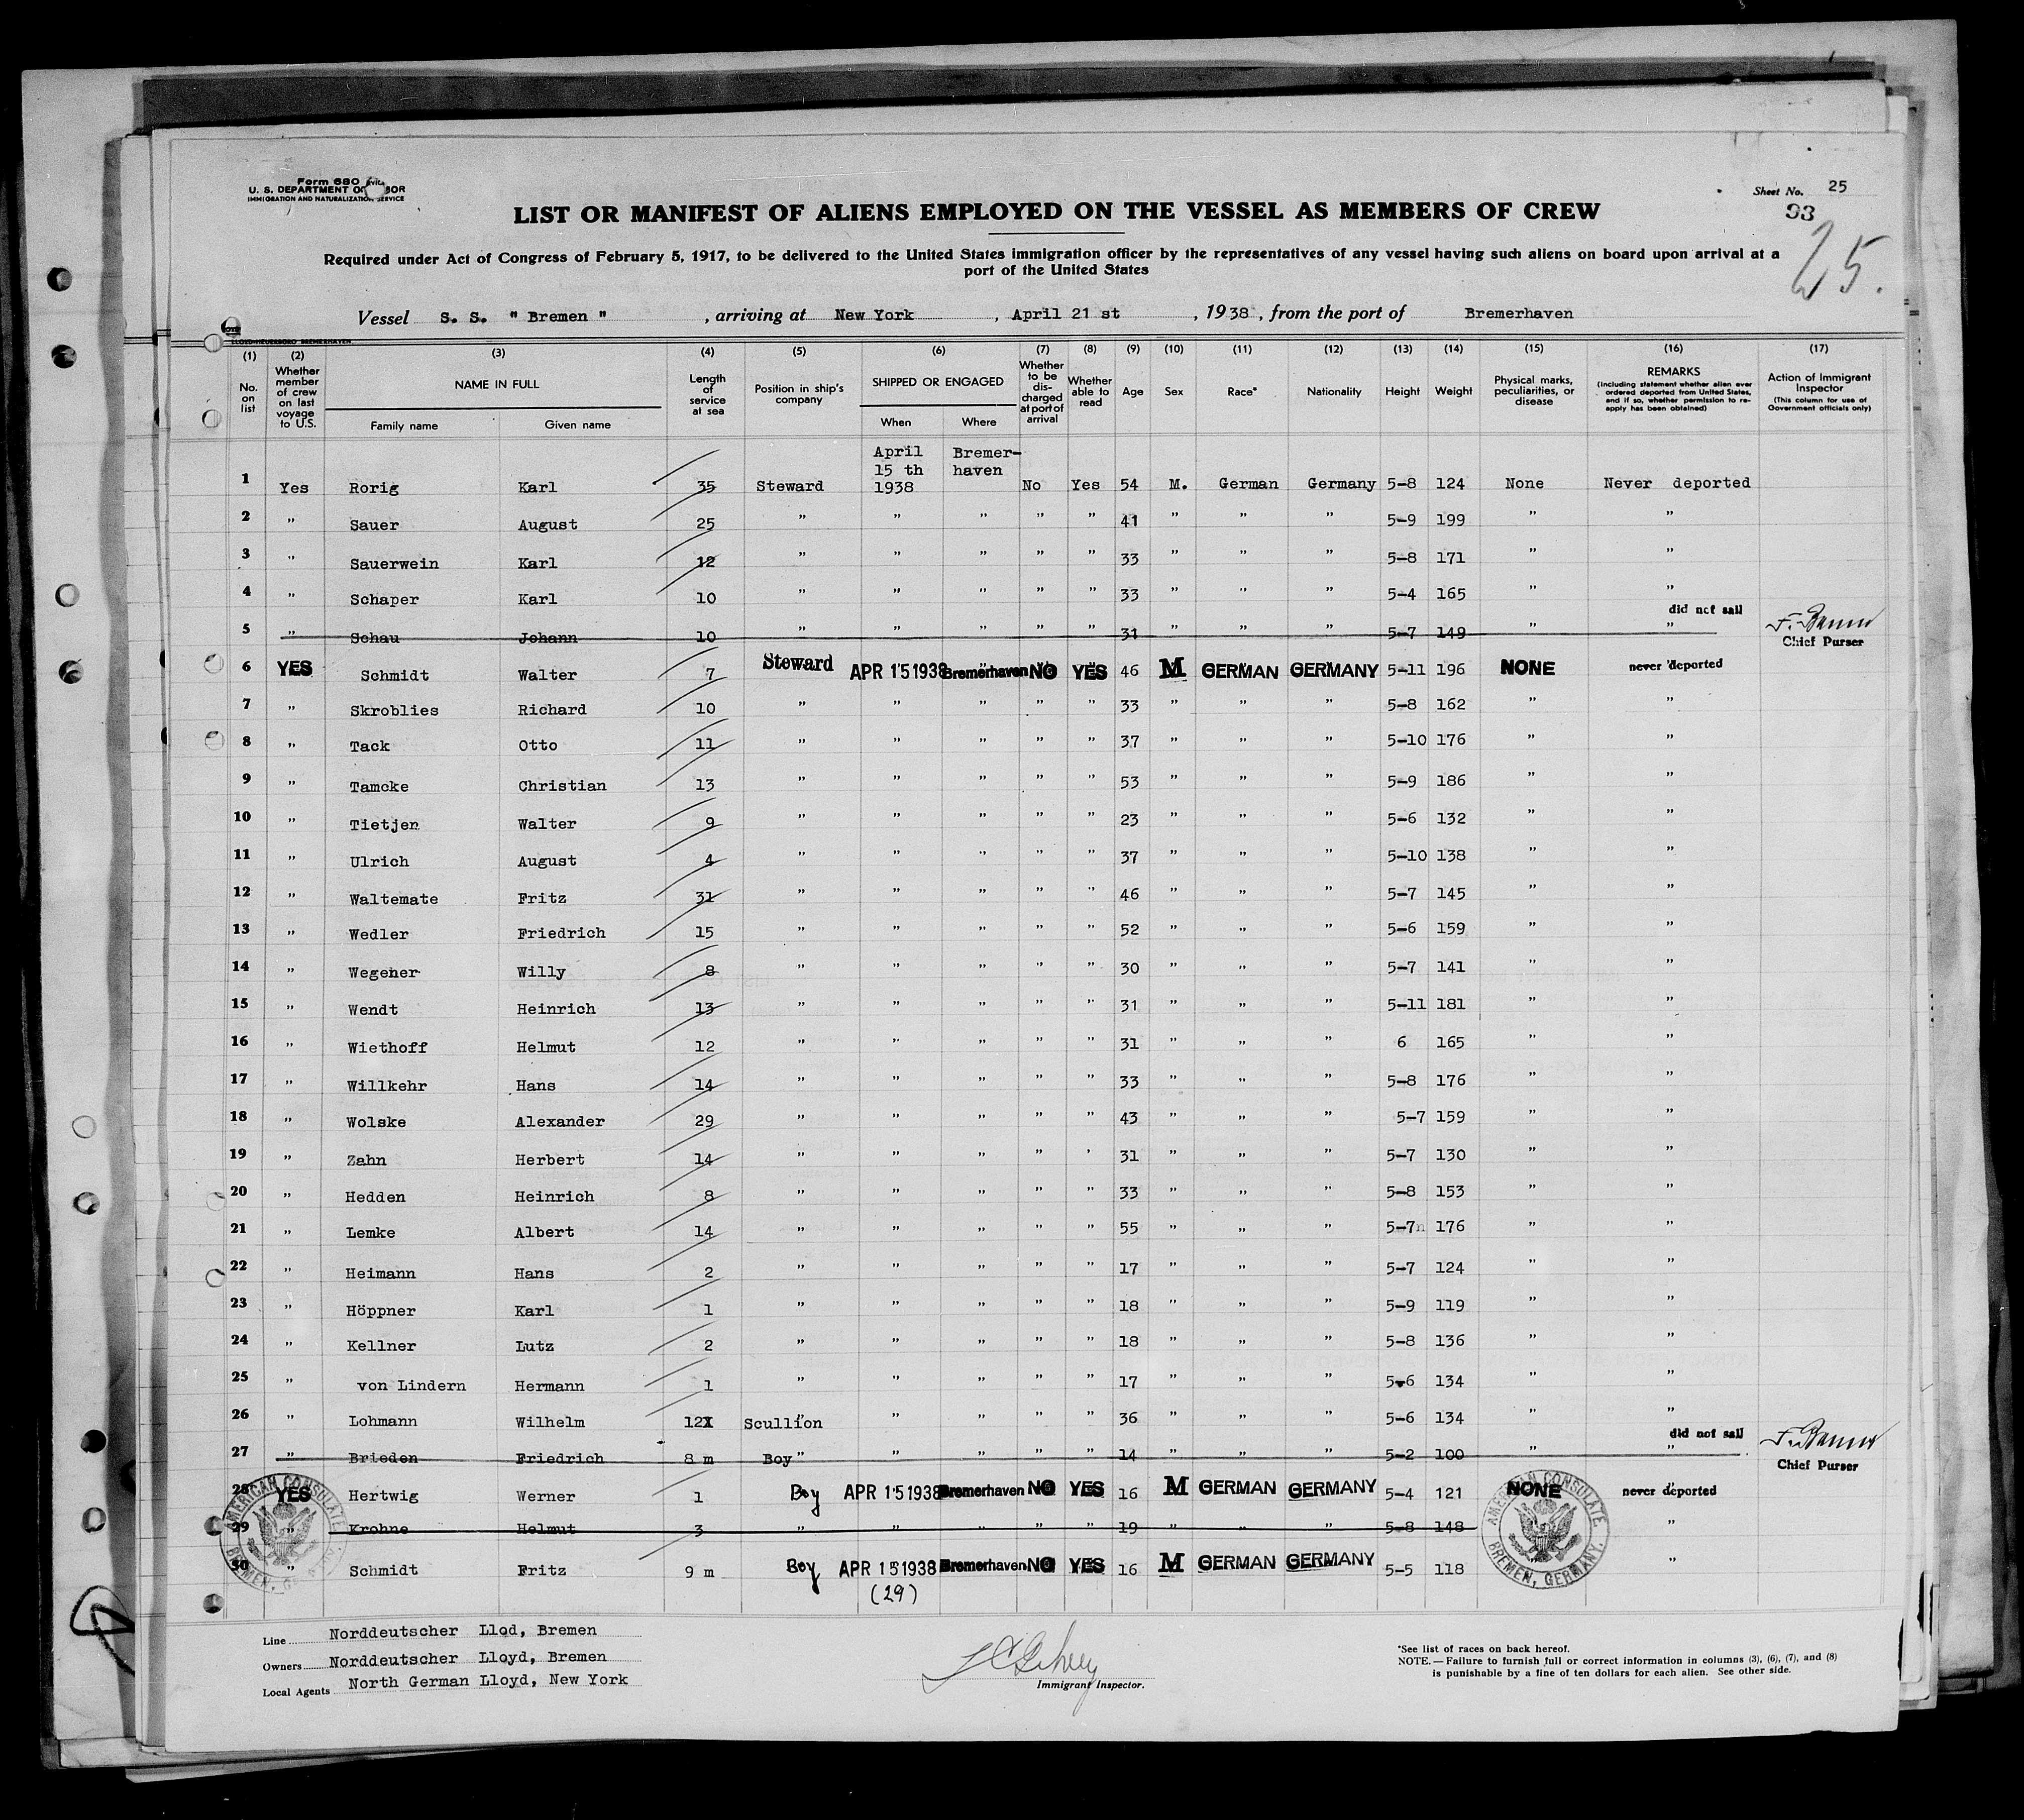 Form 680
U. S. DEPARTMENT OF LABOR
IMMIGRATION AND NATURALIZATION SERVICE
Sheet No. 25
93
25.
LIST OR MANIFEST OF ALIENS EMPLOYED ON THE VESSEL AS MEMBERS OF CREW
Required under Act of Congress of February 5, 1917, to be delivered to the United States immigration officer by the representatives of any vessel having such aliens on board upon arrival at a
port of the United States
Vessel S. S. " Bremen " , arriving at New York , April 21 st , 1938 , from the port of Bremerhaven
(1) (2) (3) (4) (5) (6) (7) (8) (9) (10) (11) (12) (13) (14) (15) (16) (17)
No. on list Whether member of crew on last voyage to U.S. NAME IN FULL Family name Given name Length of service at sea Position in ship's company SHIPPED OR ENGAGED When Where Whether to be discharged at port of arrival Whether able to read Age Sex Race* Nationality Height Weight Physical marks, peculiarities, or disease REMARKS (Including statement whether alien ever ordered deported from United States, and if so, whether permission to re-apply has been obtained) Action of Immigrant Inspector (This column for use of Government officials only)
April 15 th 1938 Bremer-haven
1 Yes Rorig Karl 35 Steward No Yes 54 M. German Germany 5-8 124 None Never deported
2 " Sauer August 25 " " " " " 41 " " " 5-9 199 " "
3 " Sauerwein Karl 12 " " " " " 33 " " " 5-8 171 " "
4 " Schaper Karl 10 " " " " " 33 " " " 5-4 165 " "
did not sail
5 " Schau Johann 10 " " " " " 31 " " " 5-7 149 " "
Chief Purser
6 YES Schmidt Walter 7 Steward APR 15 1938 Bremerhaven NO YES 46 M GERMAN GERMANY 5-11 196 NONE never deported
7 " Skroblies Richard 10 " " " " " 33 " " " 5-8 162 " "
8 " Tack Otto 11 " " " " " 37 " " " 5-10 176 " "
9 " Tamcke Christian 13 " " " " " 53 " " " 5-9 186 " "
10 " Tietjen Walter 9 " " " " " 23 " " " 5-6 132 " "
11 " Ulrich August 4 " " " " " 37 " " " 5-10 138 " "
12 " Waltemate Fritz 31 " " " " " 46 " " " 5-7 145 " "
13 " Wedler Friedrich 15 " " " " " 52 " " " 5-6 159 " "
14 " Wegener Willy 8 " " " " " 30 " " " 5-7 141 " "
15 " Wendt Heinrich 13 " " " " " 31 " " " 5-11 181 " "
16 " Wiethoff Helmut 12 " " " " " 31 " " " 6 165 " "
17 " Willkehr Hans 14 " " " " " 33 " " " 5-8 176 " "
18 " Wolske Alexander 29 " " " " " 43 " " " 5-7 159 " "
19 " Zahn Herbert 14 " " " " " 31 " " " 5-7 130 " "
20 " Hedden Heinrich 8 " " " " " 33 " " " 5-8 153 " "
21 " Lemke Albert 14 " " " " " 55 " " " 5-7 176 " "
22 " Heimann Hans 2 " " " " " 17 " " " 5-7 124 " "
23 " Höppner Karl 1 " " " " " 18 " " " 5-9 119 " "
24 " Kellner Lutz 2 " " " " " 18 " " " 5-8 136 " "
25 " von Lindern Hermann 1 " " " " " 17 " " " 5-6 134 " "
26 " Lohmann Wilhelm 12 Scullion " " " " 36 " " " 5-6 134 " "
did not sail
27 " Brieden Friedrich 8 m Boy " " " " " 14 " " " 5-2 100 " "
Chief Purser
28 YES Hertwig Werner 1 Boy APR 15 1938 Bremerhaven NO YES 16 M GERMAN GERMANY 5-4 121 NONE never deported
29 " Krohne Helmut 3 " " " " " 19 " " " 5-8 148 "
30 " Schmidt Fritz 9 m Boy APR 15 1938 Bremerhaven NO YES 16 M GERMAN GERMANY 5-5 118 "
(29)
AMERICAN CONSULATE BREMEN, GERMANY.
AMERICAN CONSULATE. BREMEN, GERMANY.
Line Norddeutscher Llod, Bremen
Owners Norddeutscher Lloyd, Bremen
Local Agents North German Lloyd, New York
Immigrant Inspector.
*See list of races on back hereof.
NOTE.—Failure to furnish full or correct information in columns (3), (6), (7), and (8)
is punishable by a fine of ten dollars for each alien. See other side.